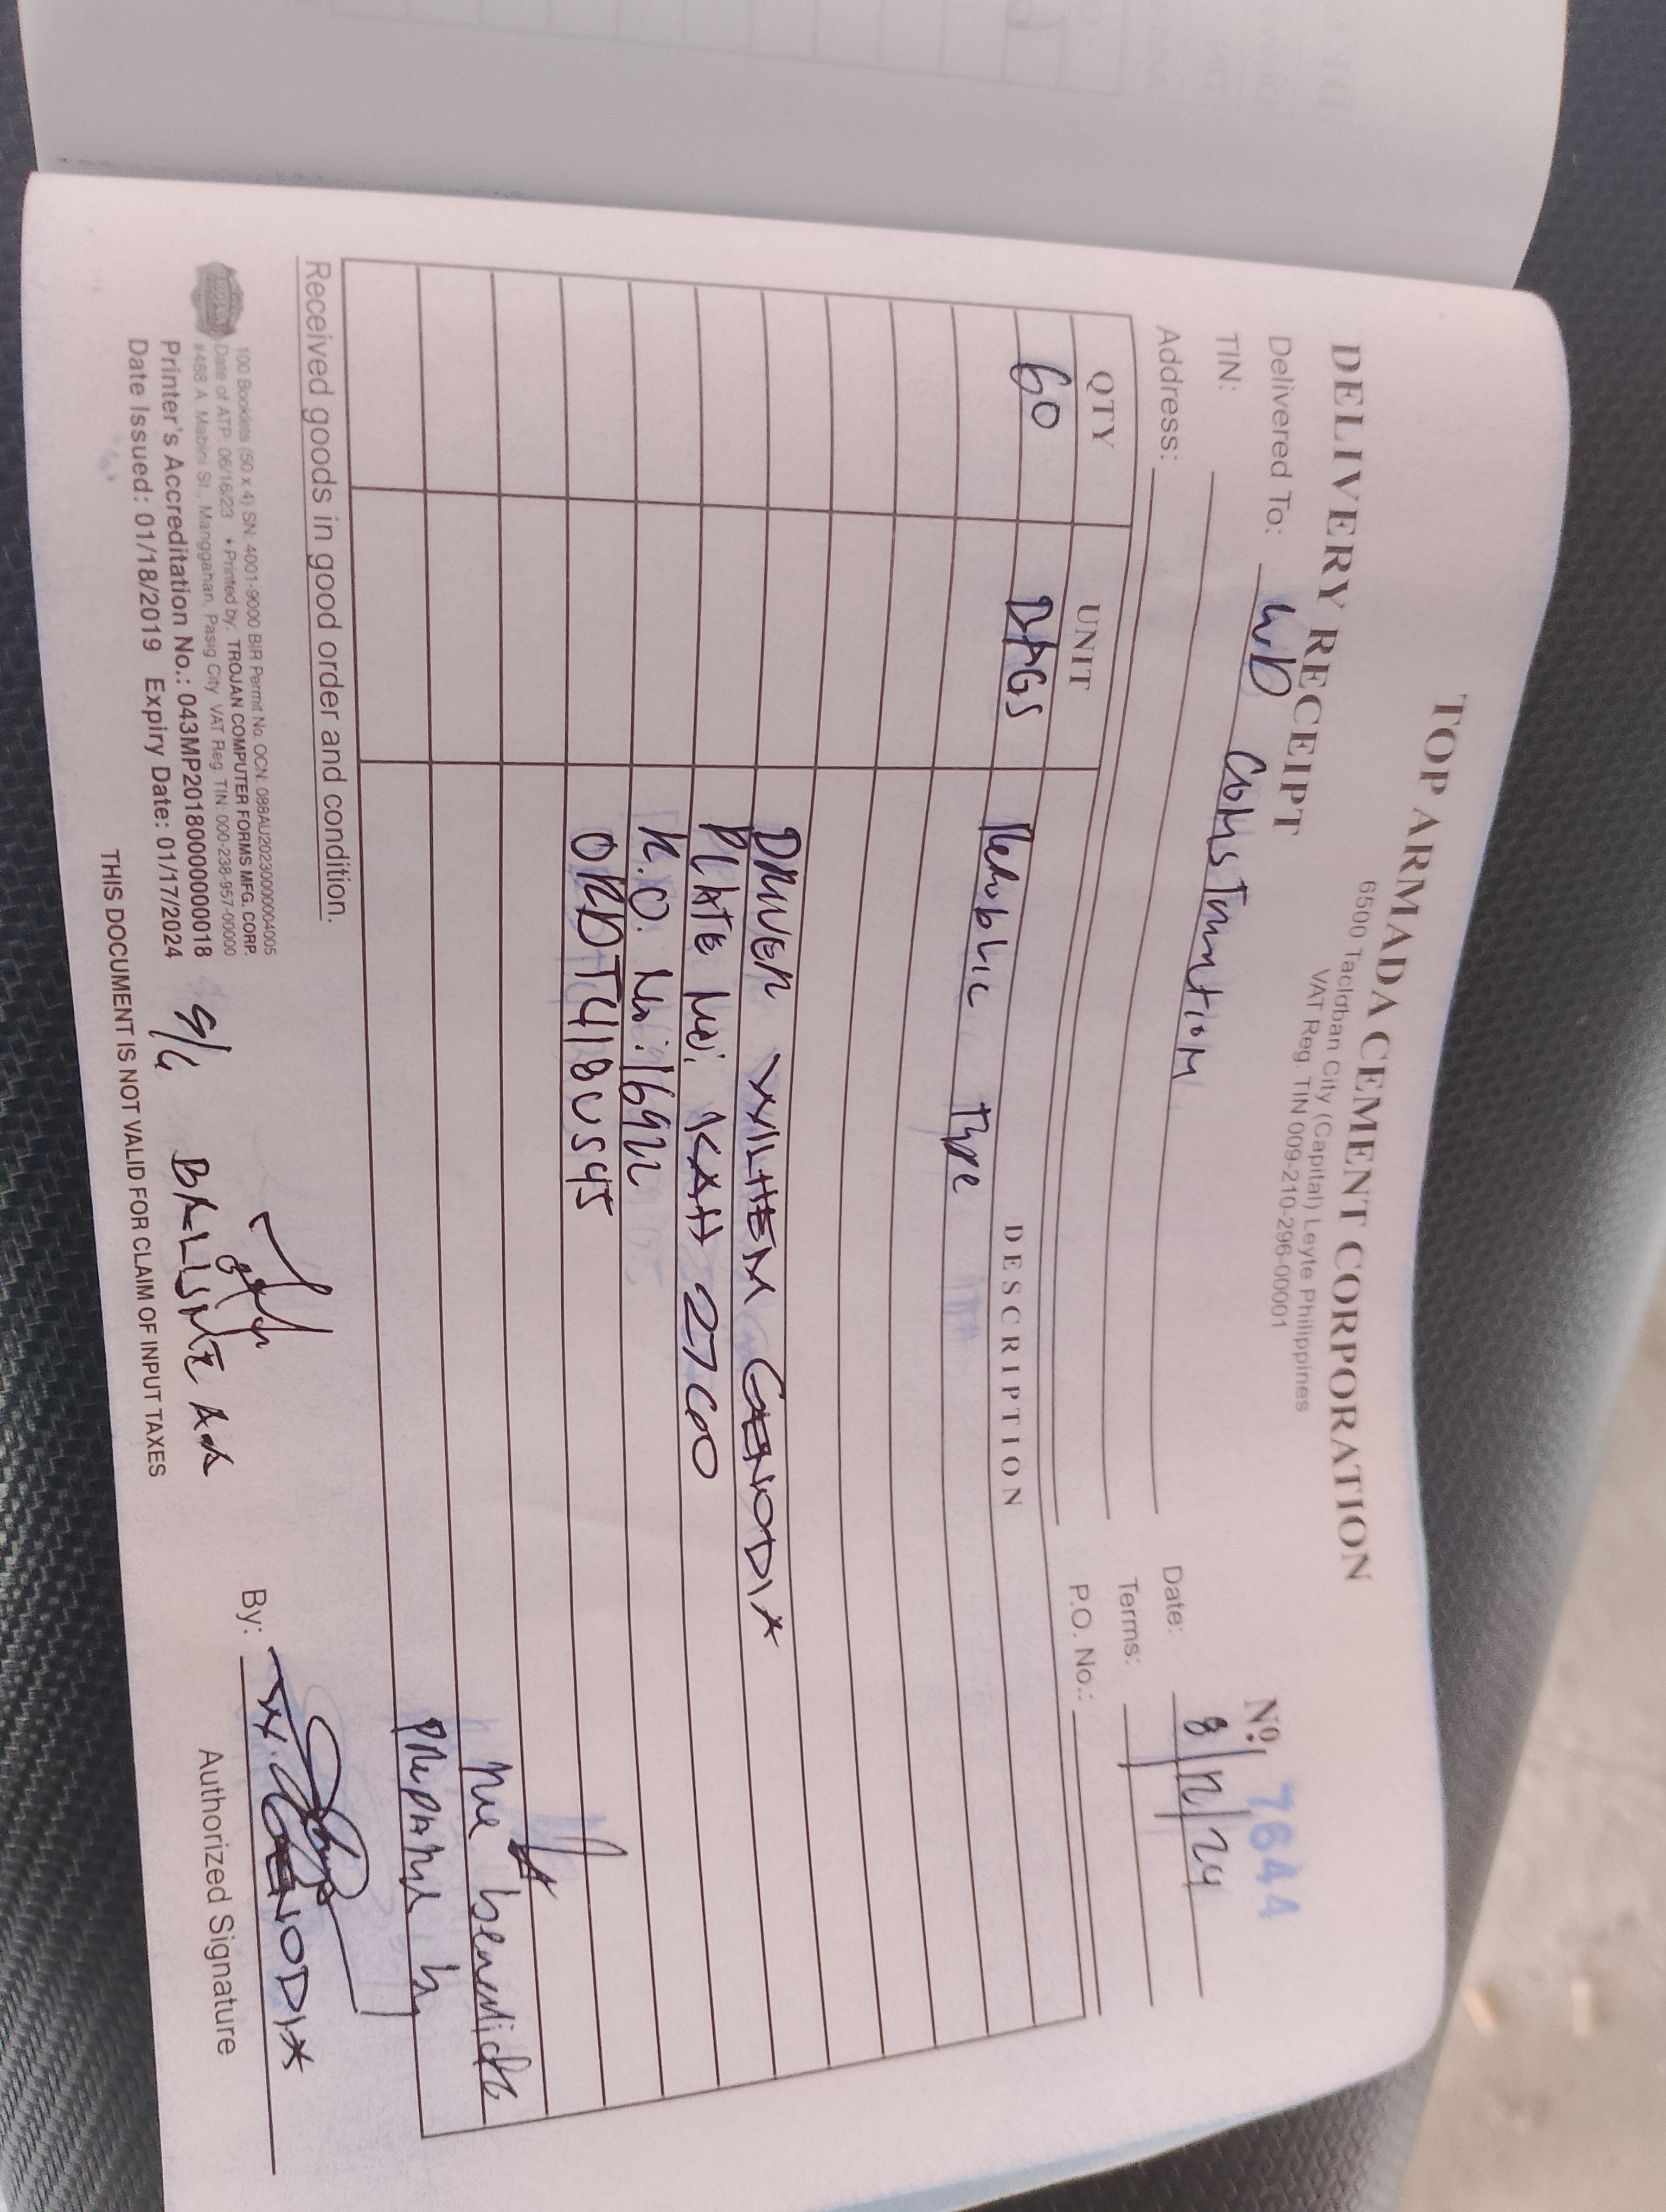 TOP ARMADA CEMENT CORPORATION
6500 Tacloban City (Capital) Leyte Philippines
VAT Reg. TIN 009-210-296-00001
DELIVERY RECEIPT
Nº 7644
Delivered To: WD CONSTRUCTION
Date: 8/12/24
TIN:
Terms:
Address:
P.O. No.:
QTY UNIT DESCRIPTION
60 BAGS Republic Type
DRIVER WILHEM GENODIA
PLATE No: KAH 2760
R.O. No: 16922
ORDT418US45
Rue benedicto
PREPARED by
Received goods in good order and condition.
100 Booklets (50 x 4) SN: 4001-9000 BIR Permit No. OCN: 088AU20230000004005
Date of ATP: 06/16/23 • Printed by: TROJAN COMPUTER FORMS MFG. CORP.
#488 A. Mabini St., Manggahan, Pasig City VAT Reg. TIN: 000-238-957-00000
Printer's Accreditation No.: 043MP20180000000018
Date Issued: 01/18/2019 Expiry Date: 01/17/2024
S/G
By: W. GENODIA
Authorized Signature
THIS DOCUMENT IS NOT VALID FOR CLAIM OF INPUT TAXES